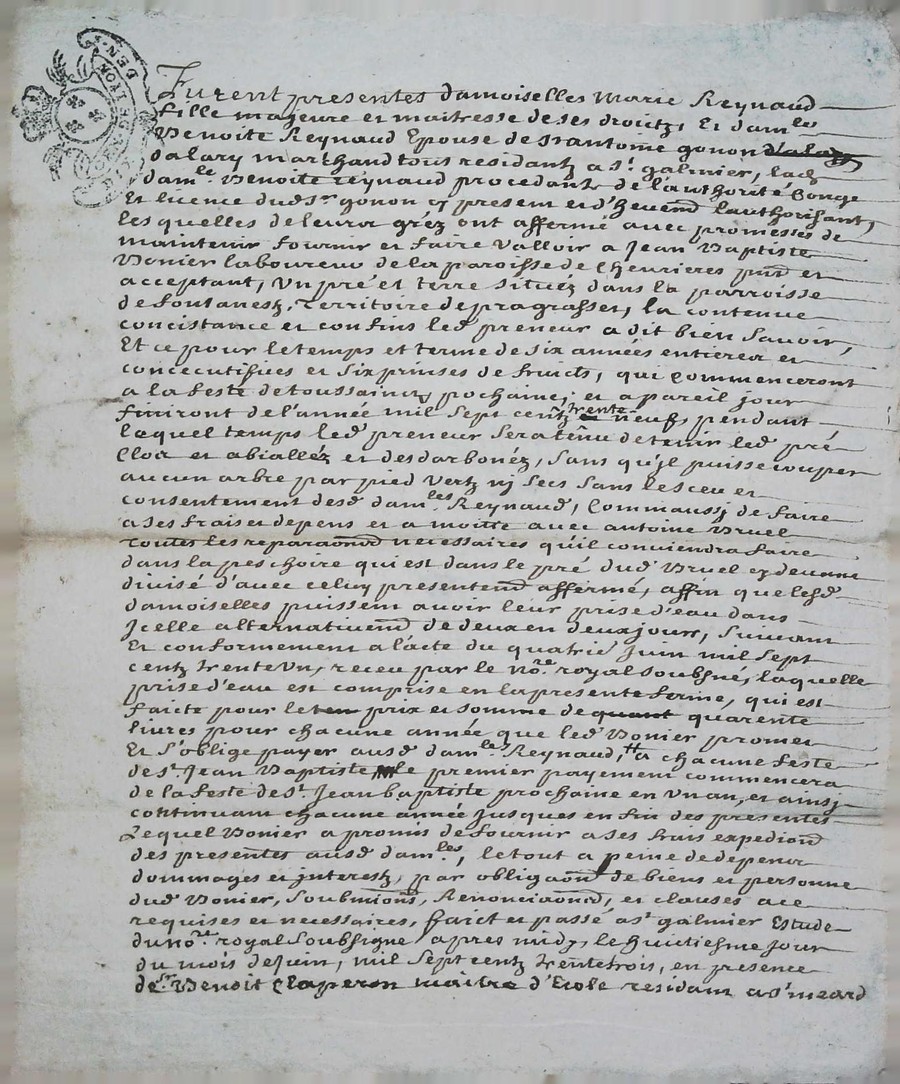 GEN. DE LYON
Furent presentes damoiselles Marie Reynaud
fille majeure et maitresse de ses droitz, Et dam.lle
Benoite Reynaud Epouse de Sr antoine gonon
dalary marchand tous residantz a St. galmier, lad.
dam.lle Benoite reynaud procedante de l'authorité Conge
Et licence dud. Sr gonon cy present et d'heuemd l'authorisant,
les quelles de leurs gréz ont affermé avec promesses de
maintenir fournir et faire valloir a Jean Baptiste
Bonier laboureur de la paroisse de Chevrieres pnt et
acceptant, Un pré et terre situéz dans la parroisse
de fontanestz, Territoire de pragrasset, la contenue
concistance et confins led. preneur a dit bien Savoir,
Et ce pour le temps et terme de six années entieres et
concecutifues et Six prinses de fruicts, qui Commenceront
a la feste de toussaints pochaine, et a pareil jour
finiront de l'année mil Sept centz trente neuf, pendant
lequel temps led. preneur Sera tenu de tenir led. pré
Clos et abialléz et desdarbonéz, Sans qu'il puisse couper
aucun arbre par pied Vertz nj Secs Sans le sceu et
consentement desd. dam.lles Reynaud, Commaussj de faire
a ses frais et depens et a moitie avec antoine Bruel
toutes les reparaons necessaires qu'il conviendra faire
dans la peschoire qui est dans le pré dud. Bruel cy devant
divisé d'avec celuy presentemd affermé, affin que lesd.
damoiselles puissent avoir leur prise d'eau dans
Jcelle alternativemd de deux en deux jours, Suivant
Et conformement a l'acte du quatrie Juin mil Sept
centz trente Un, receu par le no.re royal Soubsné, laquelle
prise d'eau est comprise en la presente ferme, qui est
faicte pour le prix et somme de quarente
livres pour chacune année que led. Bonier promet
Et S'oblige payer ausd. dam.lles Reynaud, # a chacune feste
de St. Jean Baptiste, le premier payement commencera
de la feste de St. Jean baptiste prochaine en Un an, et ainsj
continuant chacune année jusques en fin des presentes
Lequel Bonier a promis de fournir a ses frais expedion
des presentes ausd. dam.lles, le tout a peine de depens
dommages et interestz, par obligaon de biens et personne
dud. Bonier, Soubmions, Renonciaons, et clauses a ce
requises et necessaires, faict et passé a St galmier Estude
du no.re royal Soubsigne apres midy, le huictiesme jour
du mois de juin, mil Sept centz trente trois, en presence
de Sr. Benoit Claperon maitre d'Ecole residant a St meard